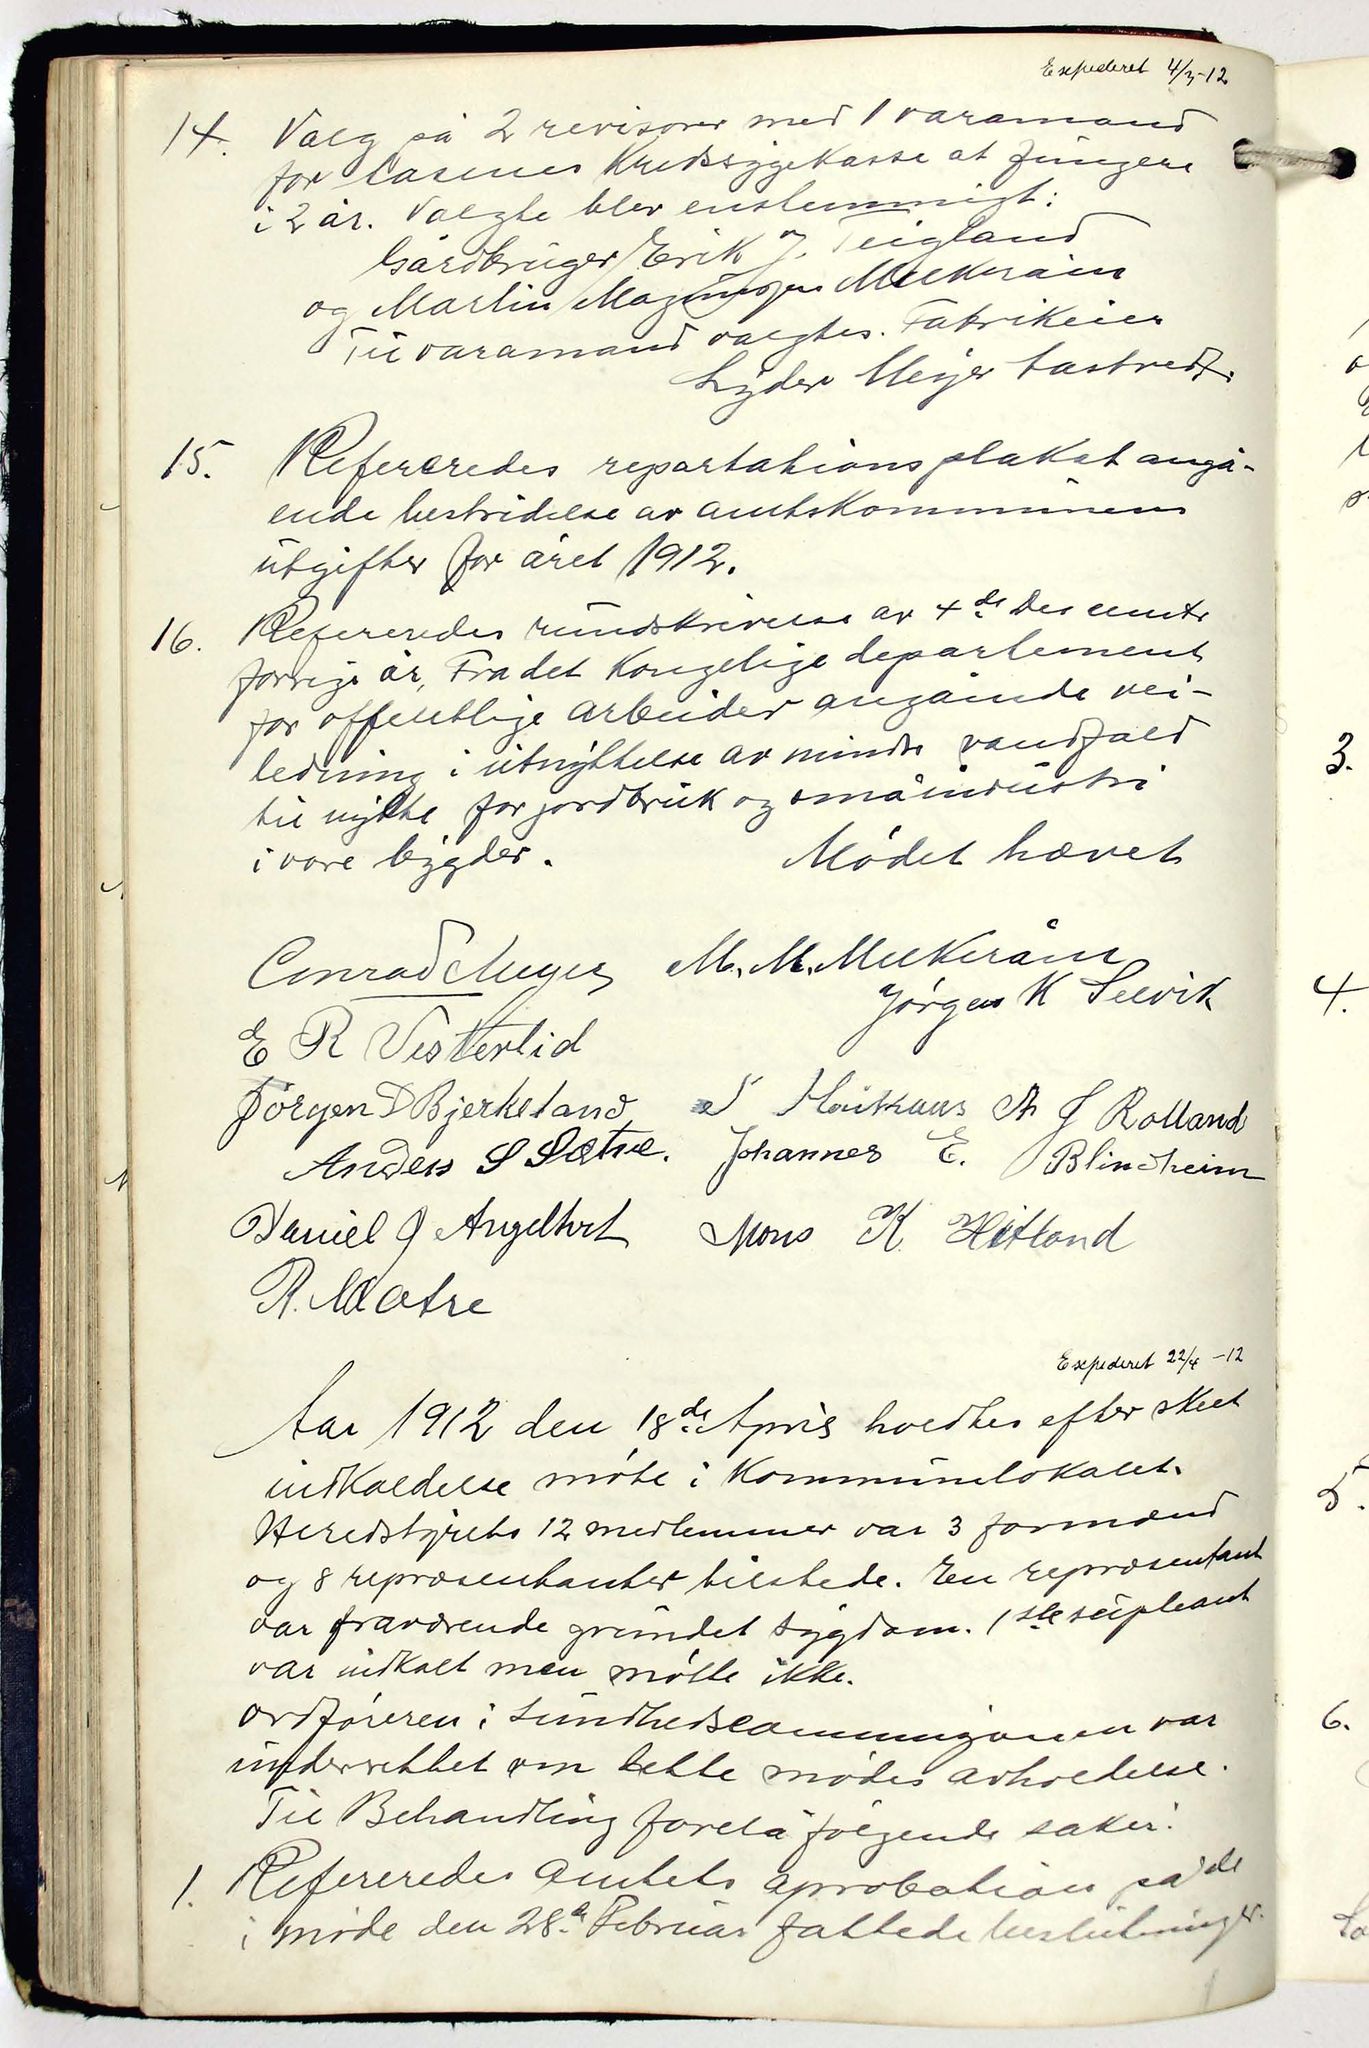 Expederet 4/3-12
14. Valg på 2 revisorer med 1 varamand
for Åsenes Kredssygekasse at fungere
i 2 år. Valgte blev enstemmigt:
Gårdbruger Erik J. Teigland
og Martin Magnusen Melkeråen
Til varamand valgtes. Fabrikeier
Lyder Meyer Tastved.
15. Refereredes repartations plakat angå-
ende bestridelse av amtskommunens
utgifter for året 1912.
16. Refereredes rundskrivelse av 4de Decembr
forrige år, Fra det Kongelige departement
for offentlige arbeider angående vei-
ledning i utnyttelse av mindre vandfald
til nytte for jordbruk og småindustri
i vore bygder. Mødet hævet
Conrad Meyer M. M. Melkeråen
Jørgen K Selvik
E R Vesterlid
Jørgen D Bjerkeland Houkaas A J Rolland
Anders S Sætre. Johannes E. Blindheim
Daniel J Angeltvet Mons K. Hitland
R. Matre
Expederet 22/4-12
Aar 1912 den 18de April holdtes efter skeet
indkaldelse møte i Kommunelokalet.
Heredstyrets 12 medlemmer var 3 formænd
og 8 repræsentanter tilstede. En repræsentant
var fraværende grundet sygdom. 1ste supleant
var indkalt men møtte ikke.
Ordføreren i Sundhedscommisjonen var
underrettet om dette mødes avholdelse.
Til Behandling forelå følgende saker:
1. Refereredes Amtets aprobation på de
i møde den 28de Februar fattede beslutninger.
3.
4.
5.
6.